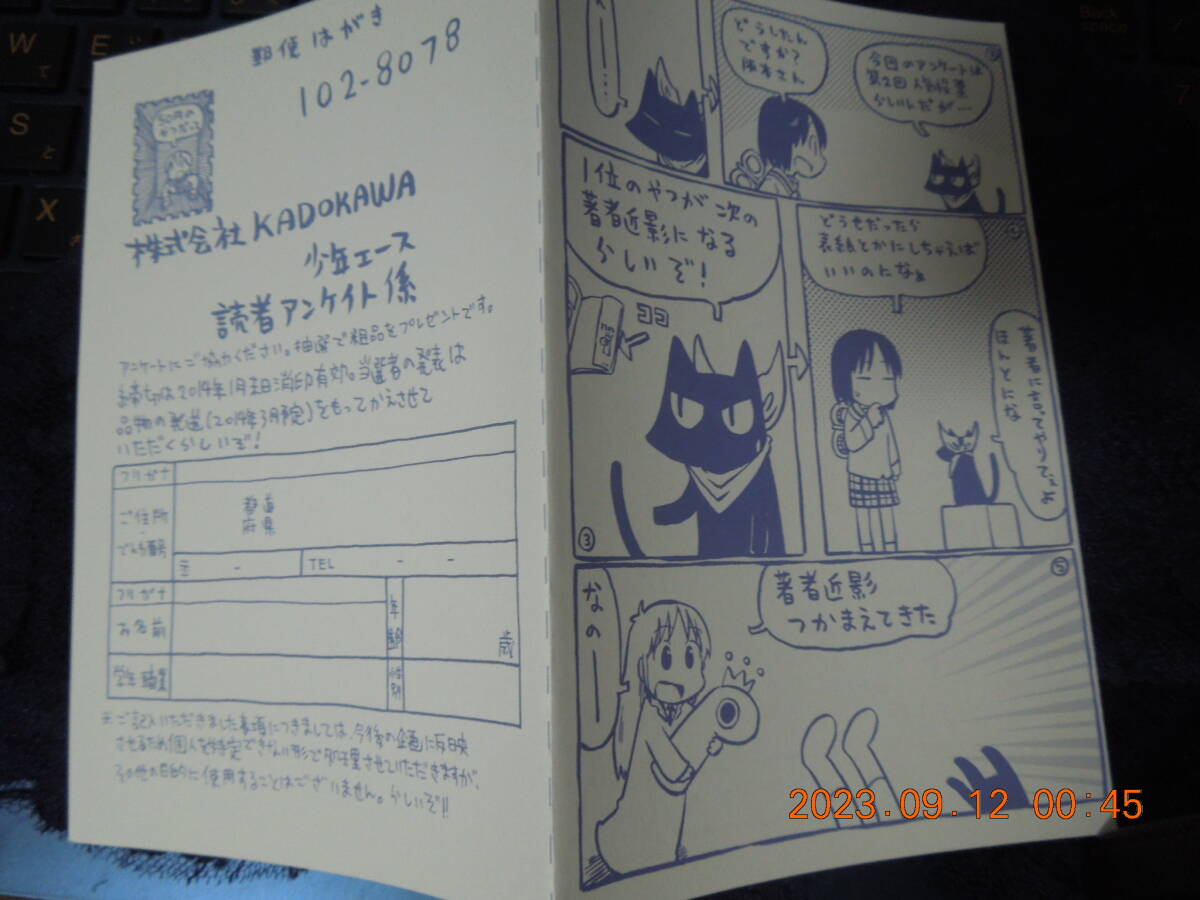 郵便はがき
102-8078
50円の
やつだっ
株式会社KADOKAWA
少年エース
読者アンケイト係
アンケートにご協力ください。抽選で粗品をプレゼントです。
締切は2014年1月末日消印有効。当選者の発表は
品物の発送(2014年3月予定)をもってかえさせて
いただくらしいぞ!
フリガナ
ご住所
でんわ番号
都道
府県
〒 -
TEL - -
フリガナ
お名前
年齢
歳
学年 職業
性別
※ご記入いただきました事項につきましては、今後の企画に反映
させるため個人を特定できない形で処理させていただきますが、
その他の目的に使用することはございません。らしいぞ!!
どうしたん
ですか?
阪本さん
今回のアンケートは
第2回人気投票
らしいしだが…
1位のやつが次の
著者近影になる
らしいぞ!
ココ
③
どうせだったら
表紙とかにしちゃえば
いいのになぁ
④
著者に言ってやりてぇよ
ほんとにな
⑤
著者近影
つかまえてきた
なのーー
Back
Space
W
て
E
S
と
X
2023.09.12 00:45